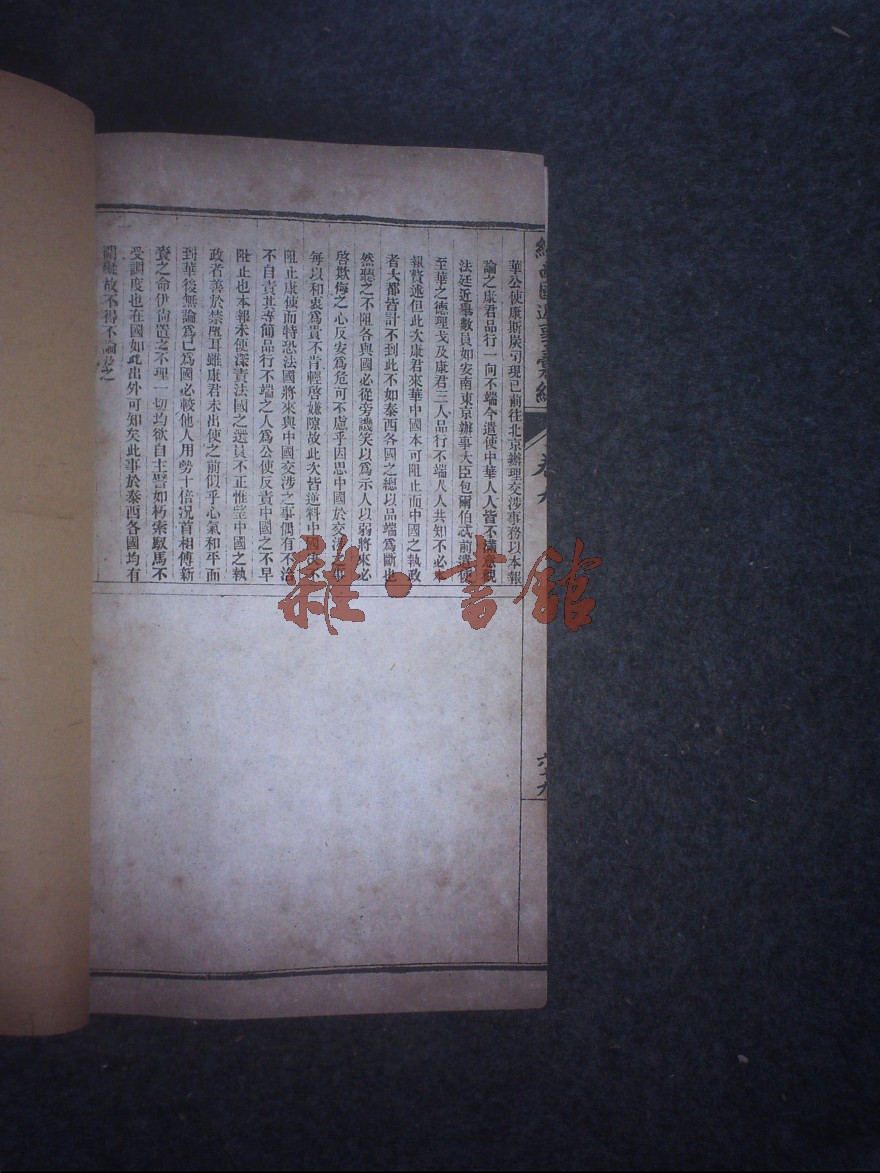 華公使康斯㞡司現已前往北京辦理交涉事務以本報
論之康君品行一向不端今遣使中華人人皆不
法廷近舉數員如安南東京辦事大臣包爾伯忒前
至華之德理戈及康君三人品行不端人人共知不必
報贅述但此次康君來華中國本可阻止而中國之執政
者大都皆計不到此不如泰西各國之總以品端為斷也
然聽之不阻各與國必從旁譏笑以為示人以弱將來必
啓欺侮之心反安為危可不慮乎因思中國於交涉之事
每以和衷為貴不肯輕啓嫌隙故此次皆逆料中國
阻止康使而特恐法國將來與中國交涉之事偶有不洽
不自責其專簡品行不端之人為公使反責中國之不早
阻止也本報未便深責法國之選員不正惟望中國之執
政者善於禁阻耳雖康君未出使之前似乎心氣和平而
到華後無論為己為國必較他人用勞十倍况首相傅新
囊之命伊尚置之不理一切均欲自主譬如朽索馭馬不
受調度也在國如此出外可知矣此事於泰西各國均有
關礙故不得不論及之
卷九
六十九
雜·書館